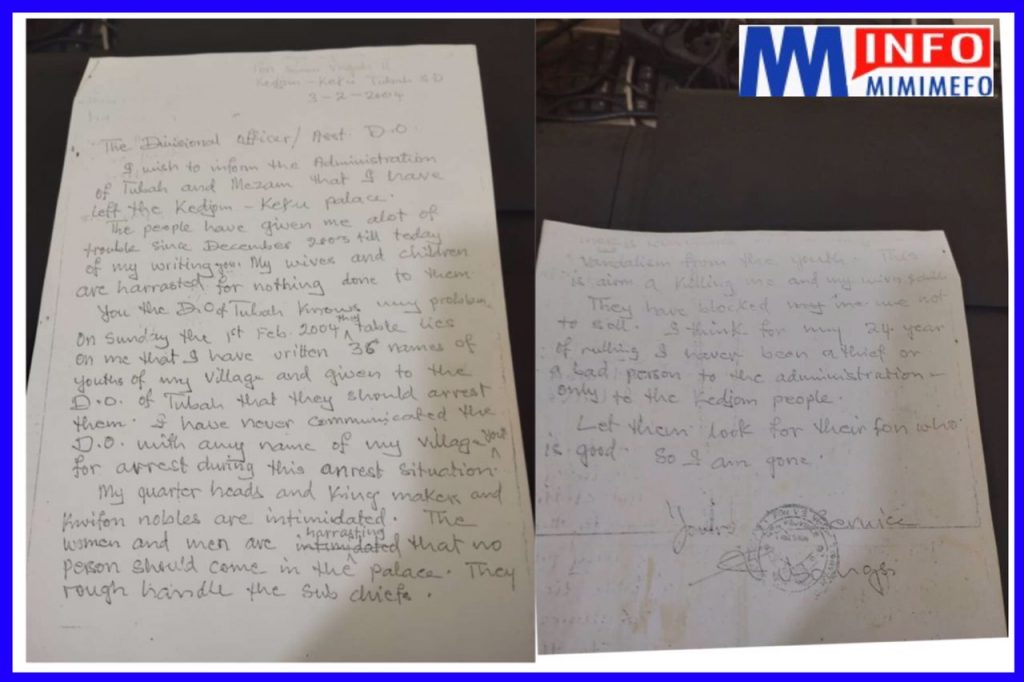 Fon Simon Vugah II
Kedjom-Keku Tubah S.D
3-2-2004
The Divisional Officer/Asst. D.O.
I wish to inform the Administration
of Tubah and Mezam that I have
left the Kedjom-Keku palace.
The people have given me alot of
trouble since December 2003 till today
of my writing you. My wives and children
are harrasted for nothing done to them
You the D.O of Tubah knows my problem
On Sunday the 1st Feb. 2004 they table lies
on me that I have written 36 names of
youths of my village and given to the
D.O. of Tubah that they should arrest
them. I have never communicated the
D.O. with any name of my village
for arrest during this anrest situation.
My quarter heads and King makers and
Kwifon nobles are intimidated. The
women and men are harrasting that no
person should come in the palace. They
rough handle the sub chiefs.
MM INFO
MIMIMEFO
vandalism from the youth. This
is aim a killing me and my wives
They have blocked my me not
to sell. I think for my 24 year
of rulling I never been a thief or
a bad person to the administration-
only to the Kedjom people.
Let them look for their fon who
is good. So I am gone.
Yours Service